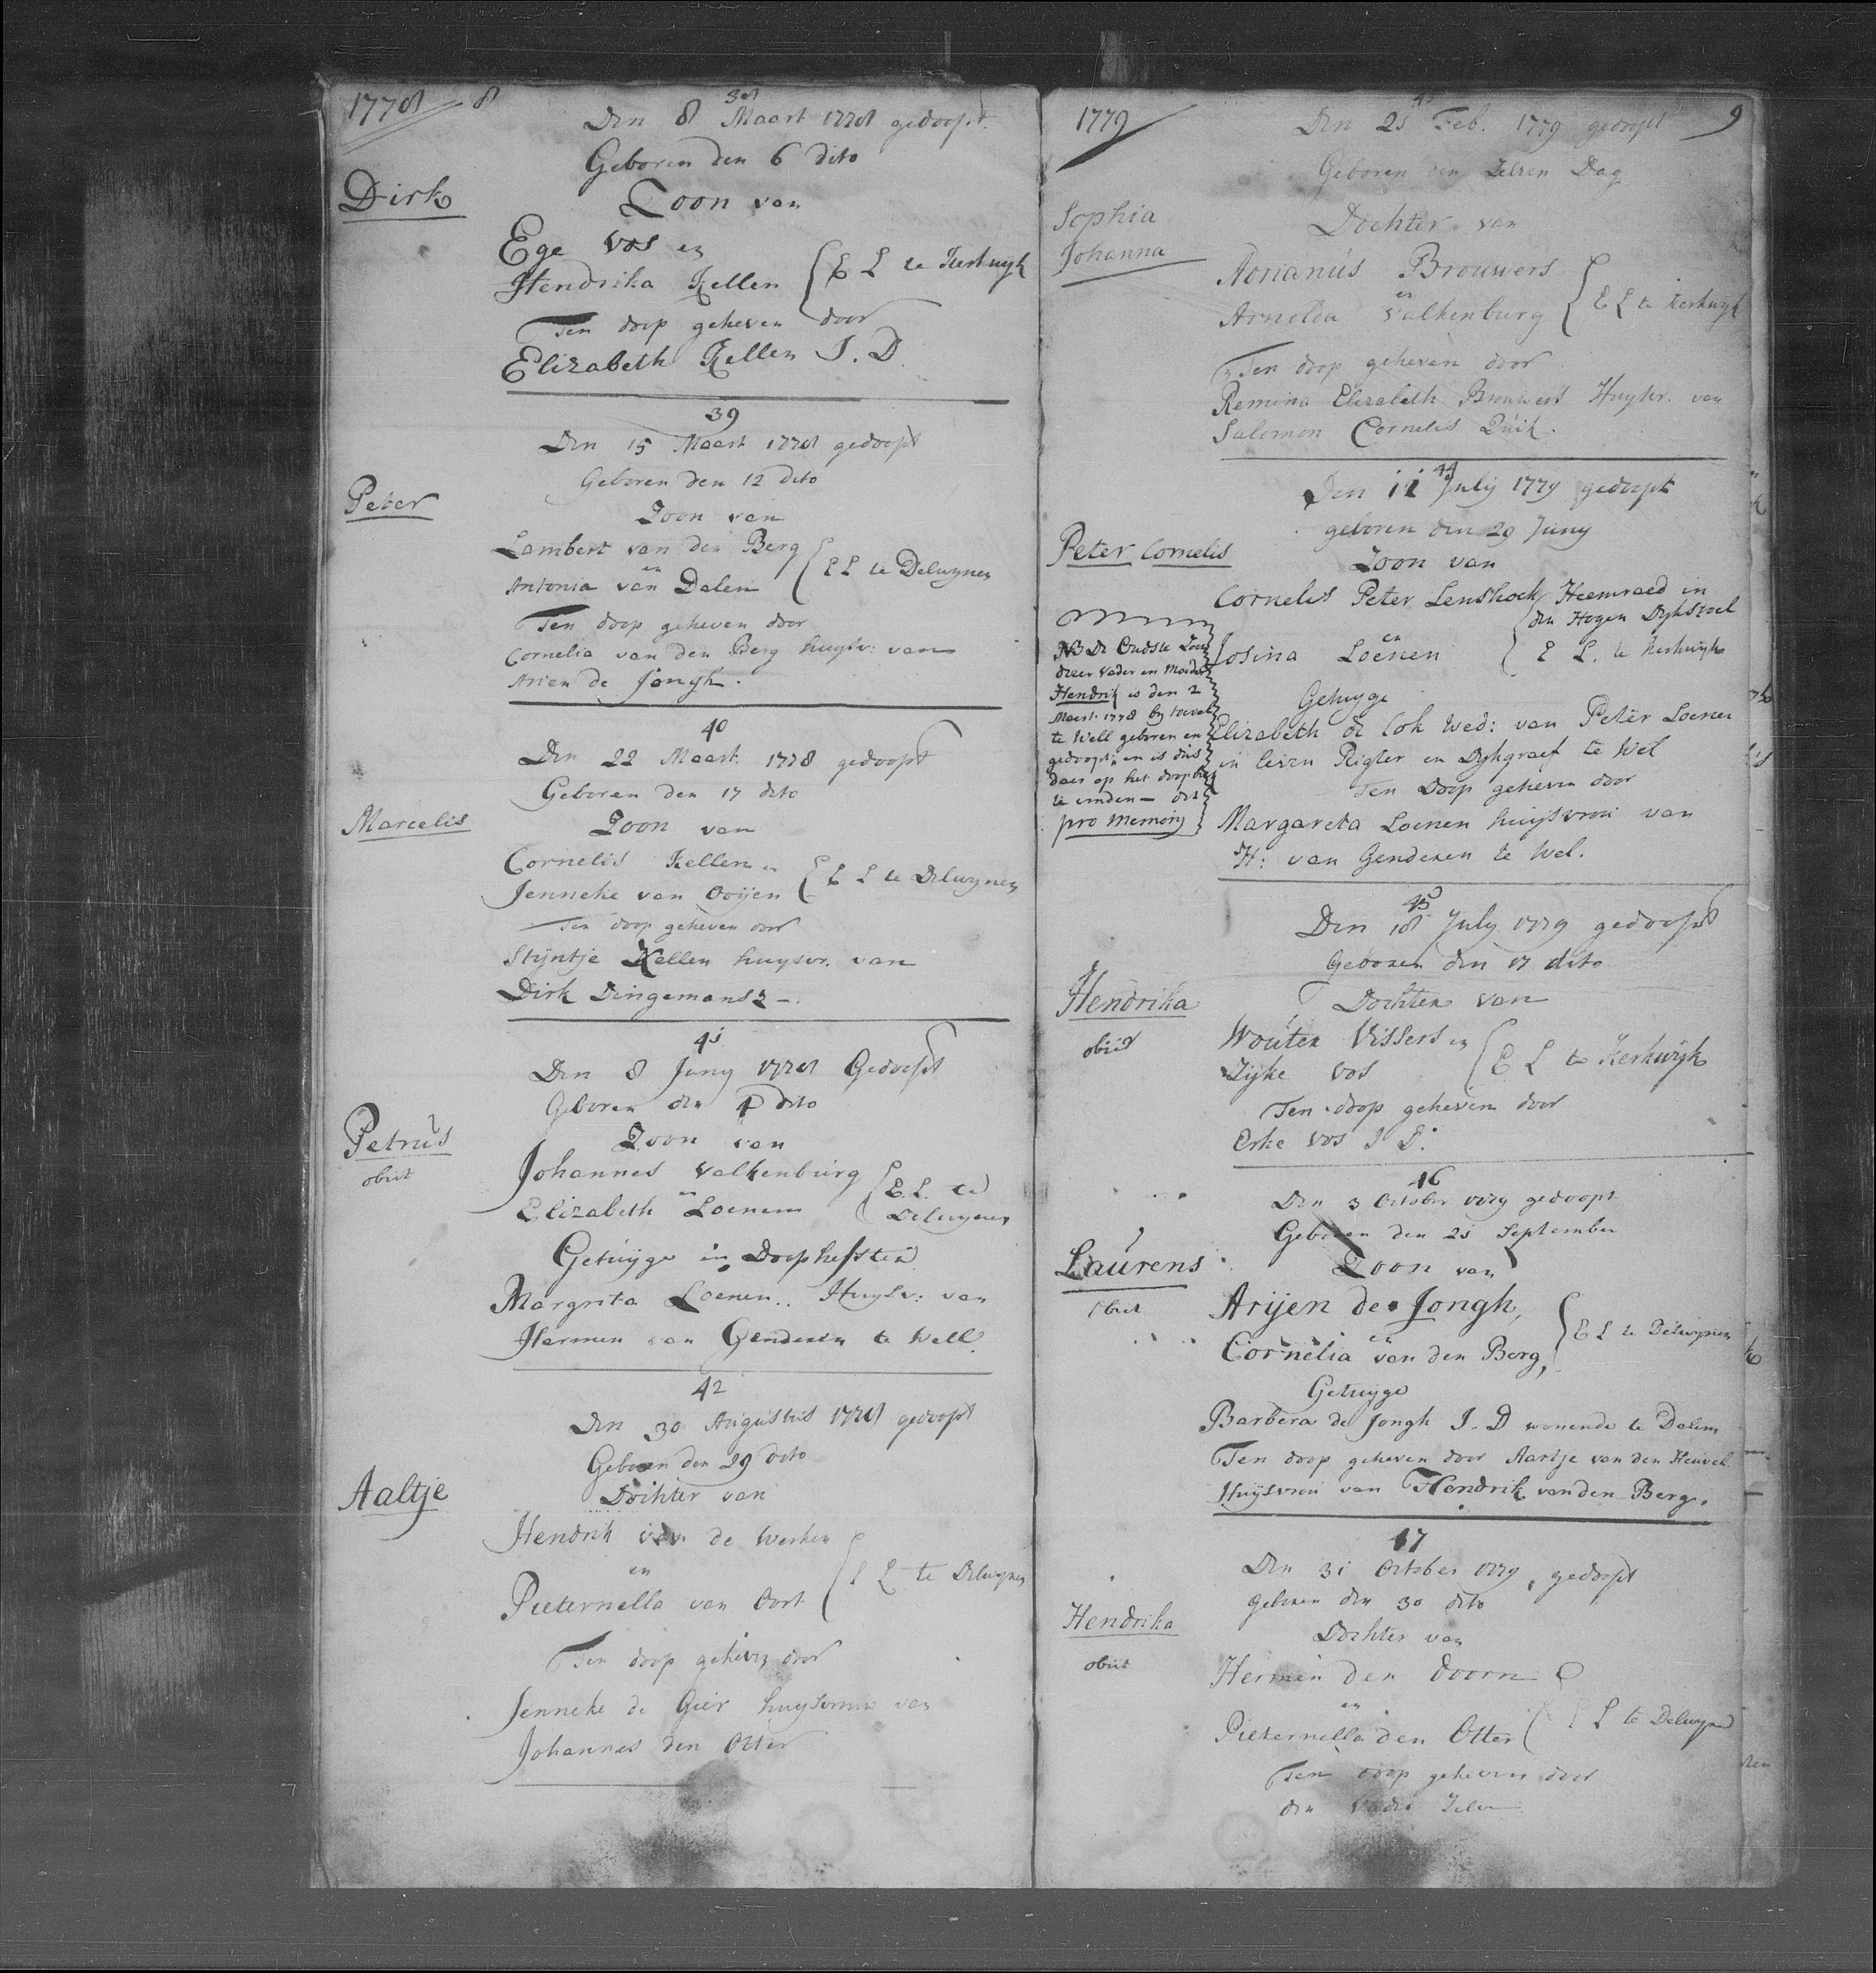 1778 8
38
Den 8 Maart 1778 gedoopt.
Geboren den 6 dito
Dirk
Zoon van
Ege Vos en
Hendrika Kellen { E L te Kerkwyk
Ten doop geheven door
Elizabeth Kellen J. D.
39
Den 15 Maart 1778 gedoopt
Geboren den 12 dito
Peter
Zoon van
Lambert van den Berg
en { E L te Delwynen
Antonia van Dalen
Ten doop geheven door
Cornelia van den Berg huysv: van
Arien de Jongh.
40
Den 22 Maart 1778 gedoopt
Geboren den 17 dito
Marcelis
Zoon van
Cornelis Kellen en
Jenneke van Ooijen { E L te Delwynen
Ten doop geheven door
Stijntje Kellen huysvr. van
Dirk Dingemansz -.
41
Den 8 Juny 1778 Gedoopt
Geboren den 4 dito
Petrus
obiit
Zoon van
Johannes Valkenburg
en { E. L. te
Elizabeth Loenen Delwynen
Getuyge in Doophefster
Margrita Loenen.. Huysv: van
Harmen van Genderen te Well.
42
Den 30 Augustus 1778 gedoopt
Geboren den 29 dito
Aaltje
Dochter van
Hendrik van de Werken
en { E L te Delwynen
Pieternella van Oort
Ten doop geheven door
Jenneke de Gier huysvrouw van
Johannes den Otter
1779 9
Den 21 Feb. 1779 gedoopt
Geboren den Zelven Dag
Sophia
Johanna
Dochter van
Adrianus Brouwers
en { E L te Kerkwyk
Arnolda Valkenburg
Ten doop geheven door
Remina Elizabeth Brouwers Huysvr. van
Salomon Cornelis Quik.
44
Den 11 July 1779 gedoopt
geboren den 29 Juny
Peter Cornelis
Zoon van
Cornelis Peter Lenshoek Heemraed in
den Hogen Dykstoel
en
Josina Loenen { E L. te Kerkwyk
NB De Oudste Zoon
dezer Vader en Moeder
Hendrik is den 2
Maert 1778 by toeval
te Well geboren en
gedoopt, en is dus
daer op het doophek
te vinden - dit
pro memory
Getuyge
Elizabeth de Cok Wed: van Peter Loenen
in leven Rigter en Dykgraef te Wel
Ten Doop geheven door
Margareta Loenen huijsvrou van
H: van Genderen te Wel.
45
Den 18 July 1779 gedoopt
Geboren den 17 dito
Hendrika
obiit
Dochter van
Wouter Vissers en
Zijke Vos { E L te Kerkwijk
Ten doop geheven door
Erke Vos J D.
46
Den 3 October 1779 gedoopt
Geboren den 25 September
Laurens
obiit
Zoon van
Arijen de Jongh,
en { E L te Delwynen
Cornelia van den Berg,
Getuyge
Barbera de Jongh J. D wonende te Dalem
Ten doop geheven door Aartje van den Heuvel
Huijsvrou van Hendrik van den Berg.
47
Den 31 October 1779, gedoopt
geboren den 30 dito
Hendrika
obiit
Dochter van
Hermen den Doorn
en
Pieternella den Otter { E L te Delwynen
Ten doop geheven door
den Vader Zelve